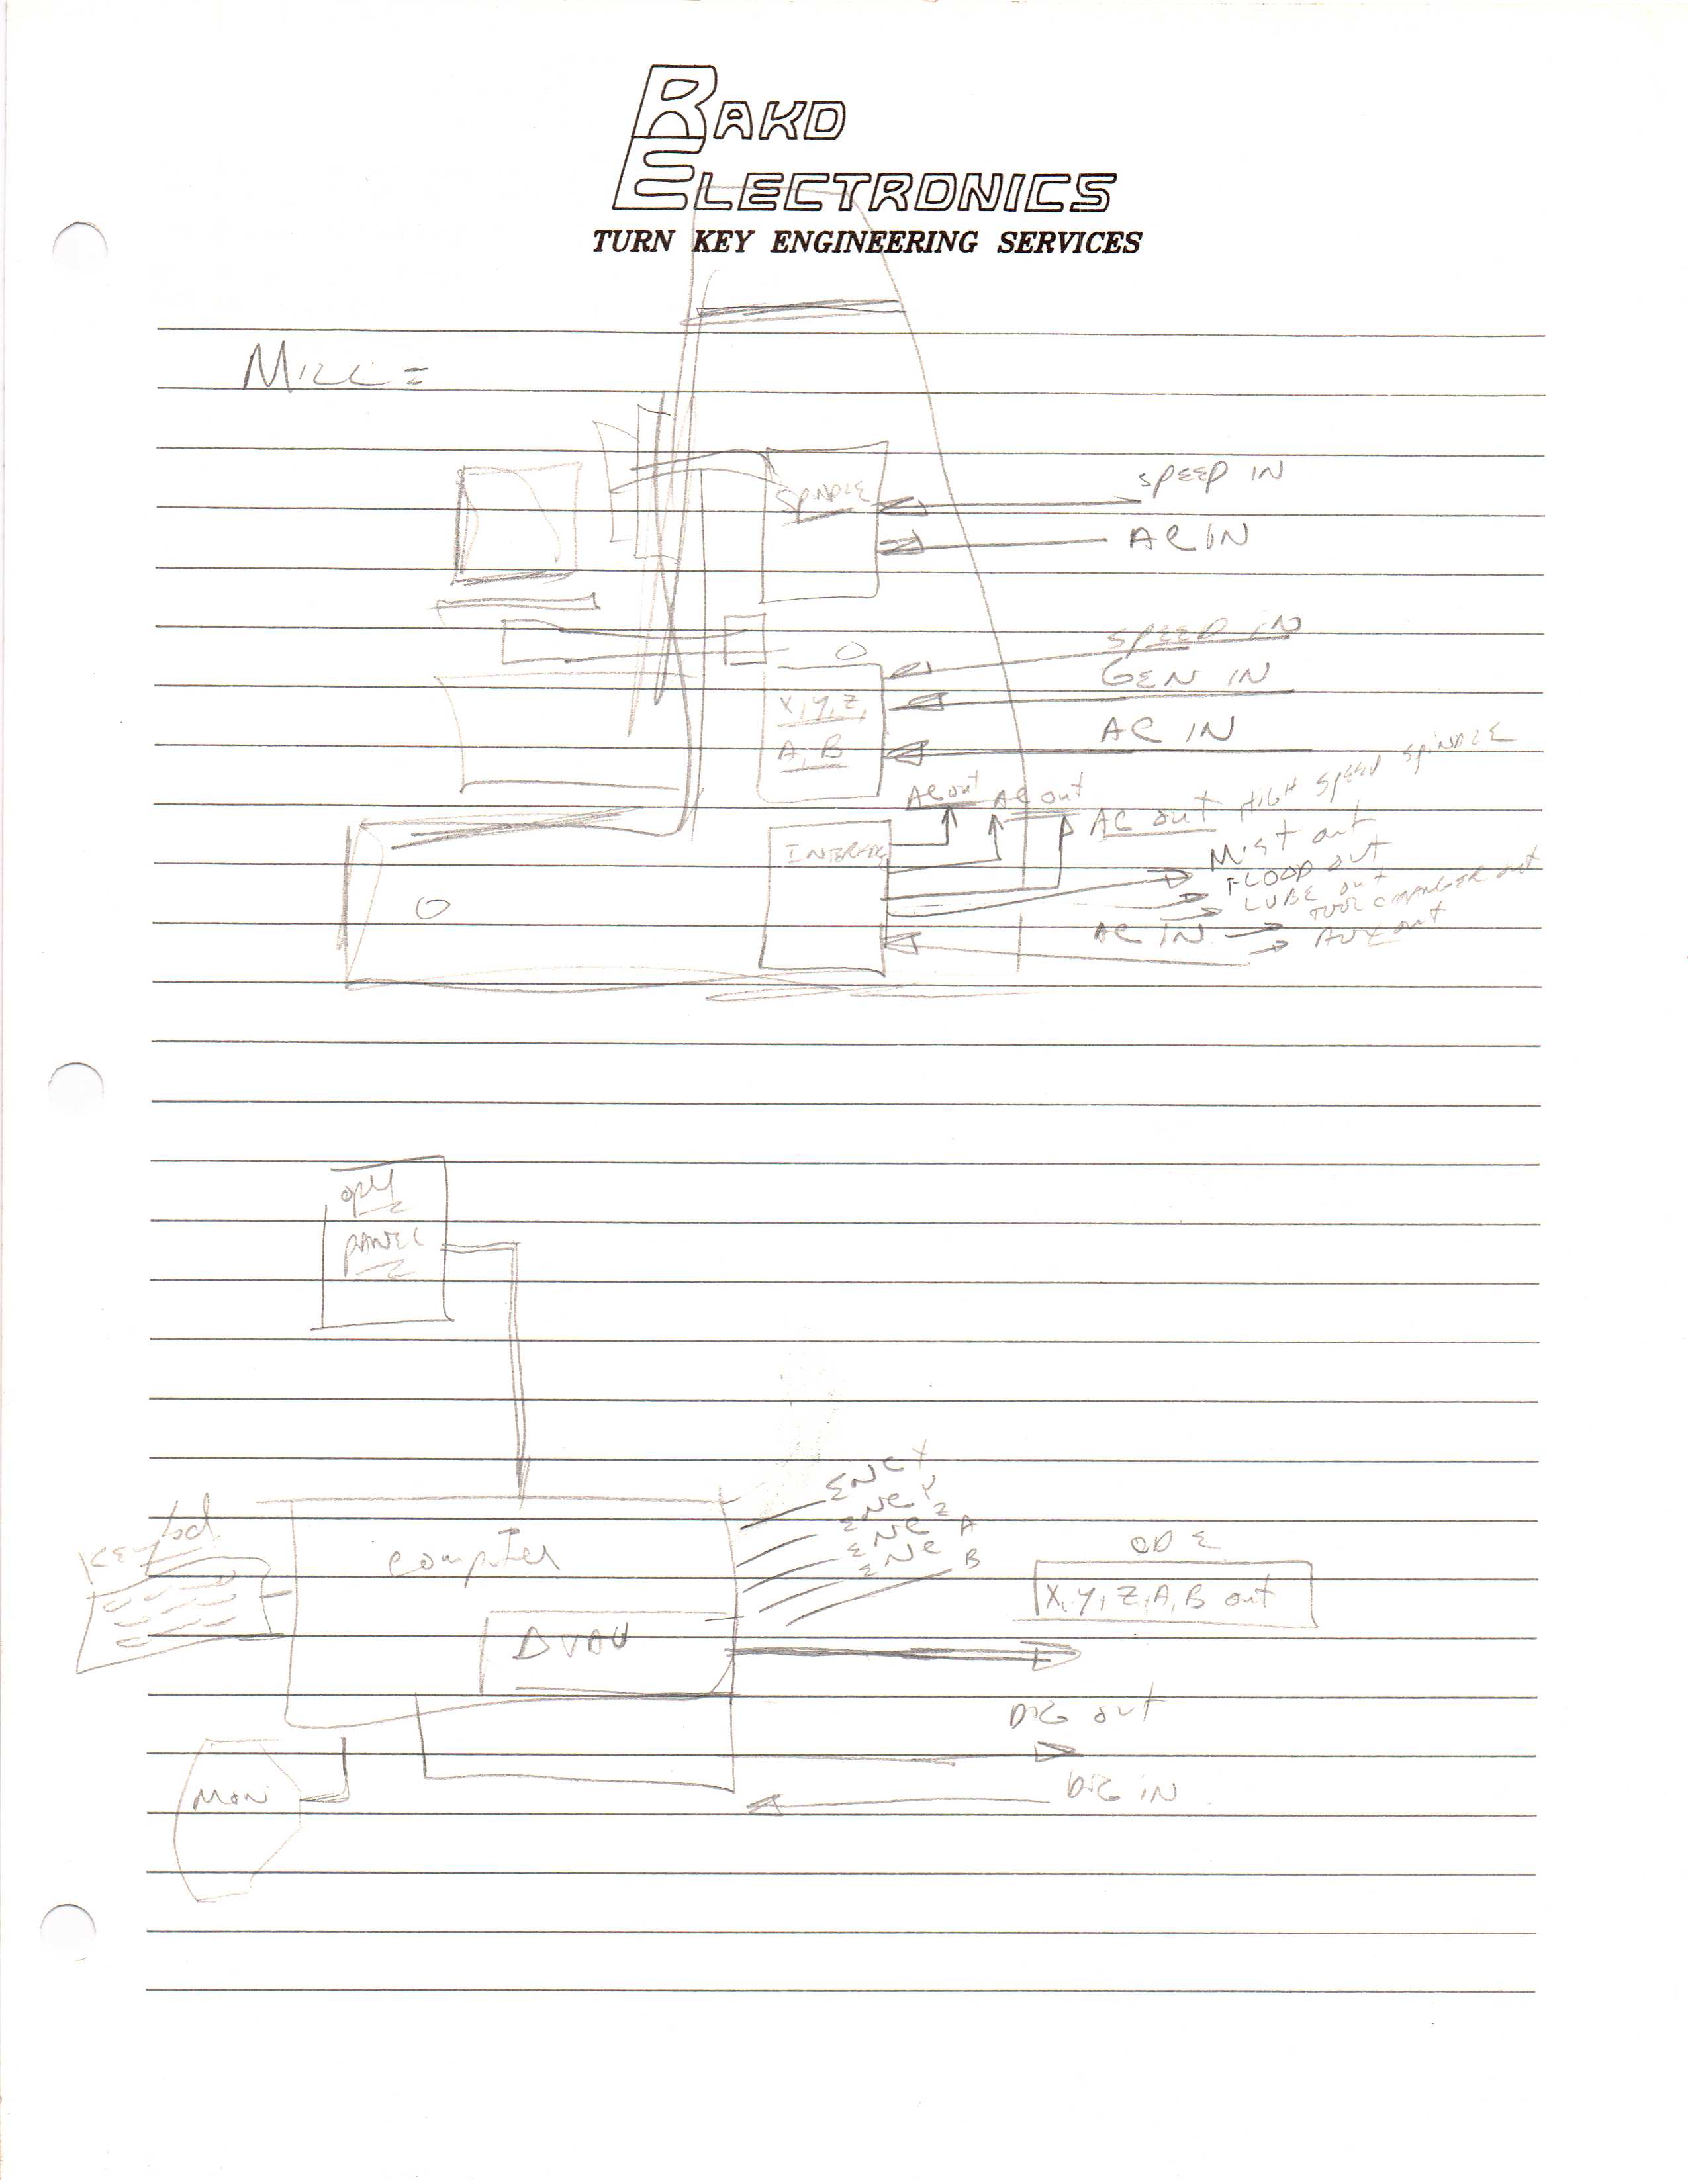 RAKO
ELECTRONICS
TURN KEY ENGINEERING SERVICES
MILL =
SPINDLE
SPEED IN
AC IN
SPEED IN
GEN IN
X, Y, Z,
A, B
AC IN
AC out AC out AC out HIGH SPEED SPINDLE
INTERFACE
MIST out
FLOOD out
LUBE out
TOOL CHANGER out
AC IN
AUX out
PANEL
ENC X
ENC Y
ENC Z
ENC A
B
KEYbd
computer
X, Y, Z, A, B out
DIG out
MON
DIG IN